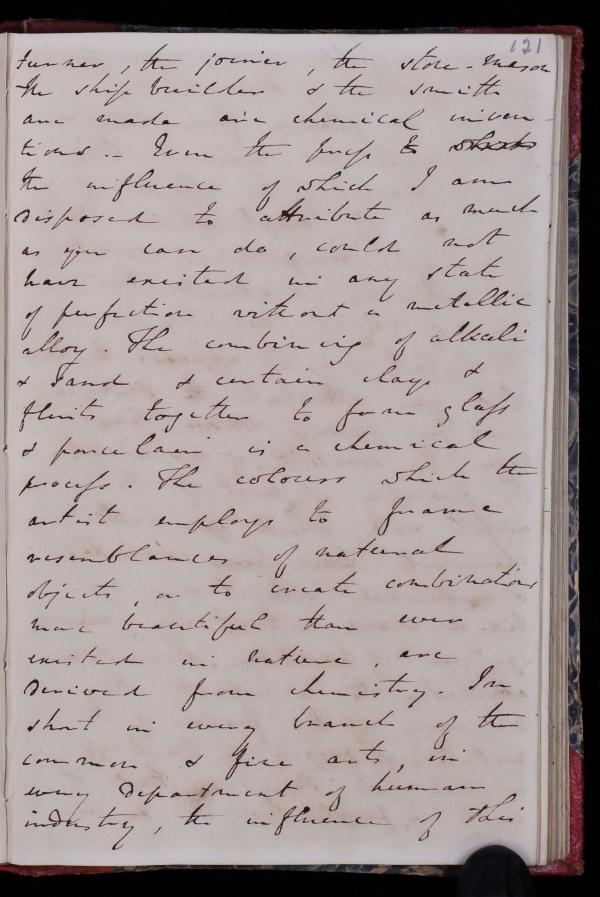 121
turner, the joiner, the stone-mason
the ship builder & the smith
are made are chemical inven-
tions. - Even the press to
the influence of which I am
disposed to attribute as much
as you can do, could not
have existed in any state
of perfection without a metallic
alloy. The combining of alkali
& sand & certain clays &
flints together to form glass
& porcelain is a chemical
process. The colours which the
artist employs to frame
resemblances of natural
objects, or to create combinations
more beautiful than ever
existed in nature, are
derived from chemistry. In
short in every branch of the
common & fine arts, in
every department of human
industry, the influence of this